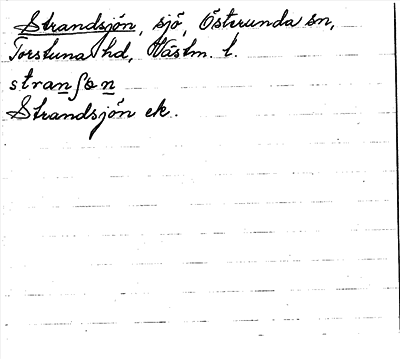 Strandsjön, sjö, Österunda sn,
Torstuna hd, Västm. l.
stranʃɵn
Strandsjön ek.